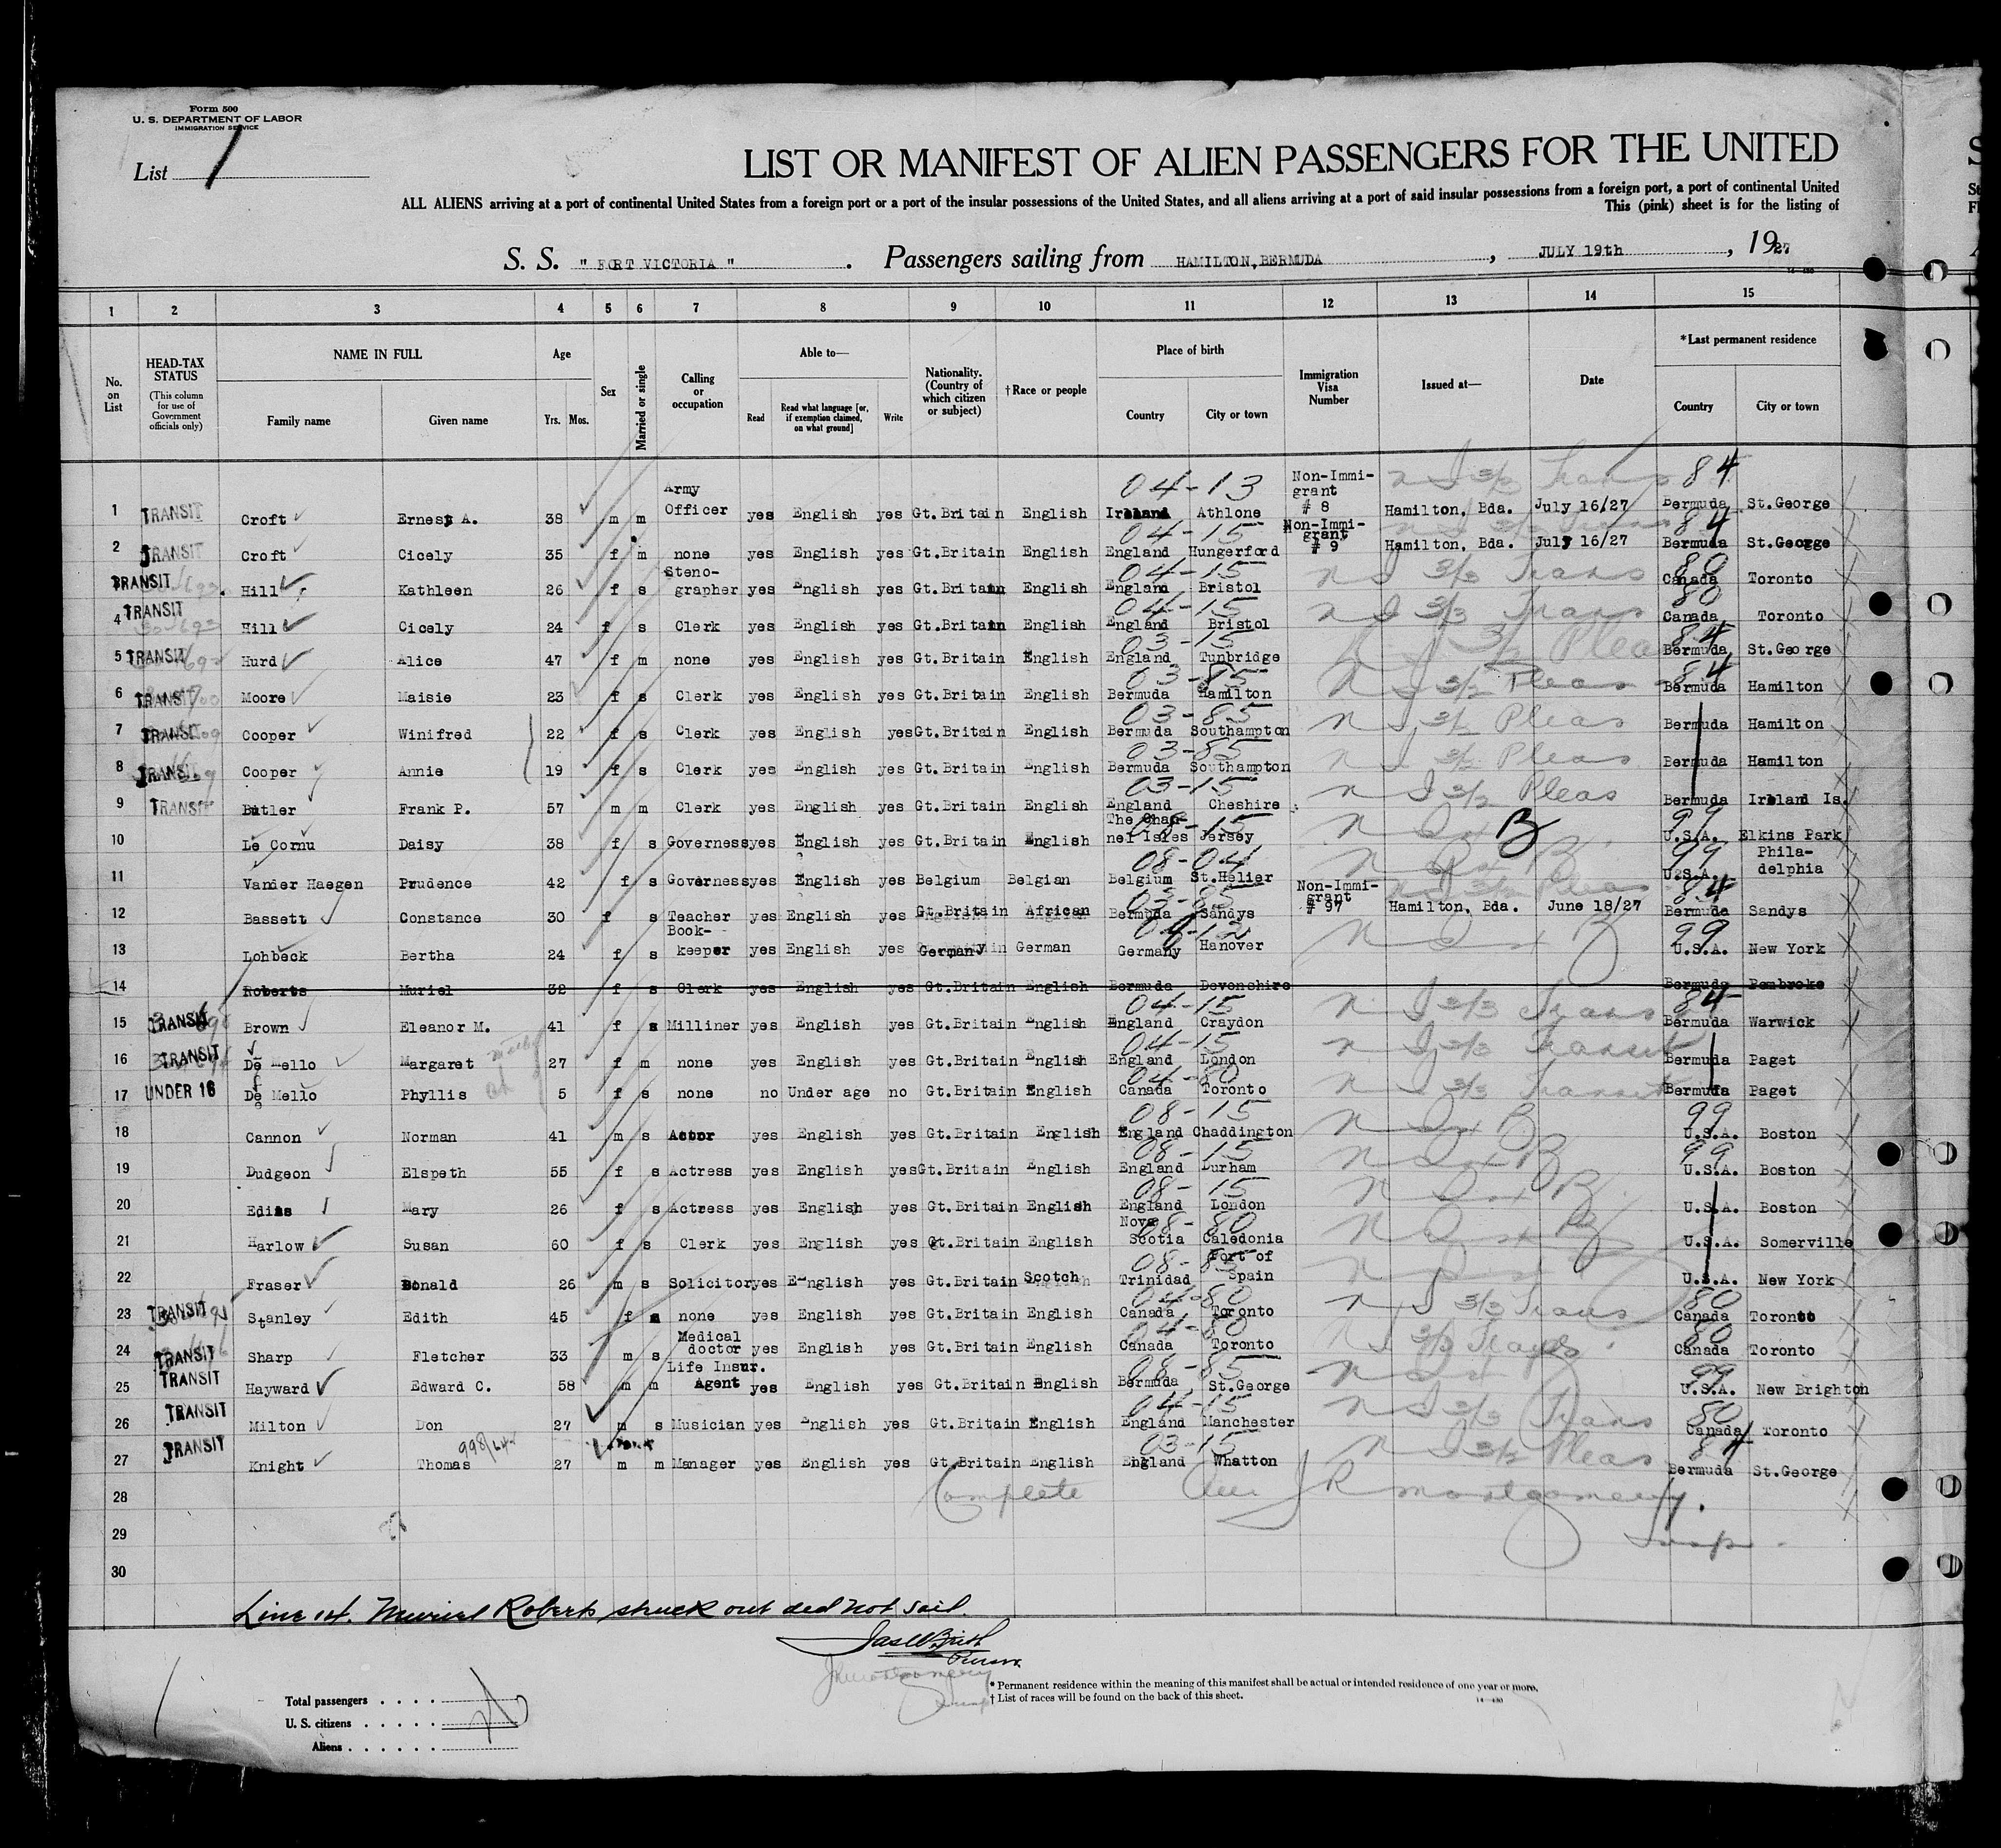 Form 500
U. S. DEPARTMENT OF LABOR
IMMIGRATION SERVICE
List 1
LIST OR MANIFEST OF ALIEN PASSENGERS FOR THE UNITED
ALL ALIENS arriving at a port of continental United States from a foreign port or a port of the insular possessions of the United States, and all aliens arriving at a port of said insular possessions from a foreign port, a port of continental United
This (pink) sheet is for the listing of
S. S. " FORT VICTORIA " . Passengers sailing from HAMILTON, BERMUDA , JULY 19th , 1927
1 2 3 4 5 6 7 8 9 10 11 12 13 14 15
No. on List HEAD-TAX STATUS (This column for use of Government officials only) NAME IN FULL Family name Given name Age Yrs. Mos. Sex Married or single Calling or occupation Able to— Read Read what language [or, if exemption claimed, on what ground] Write Nationality. (Country of which citizen or subject) †Race or people Place of birth Country City or town Immigration Visa Number Issued at— Date *Last permanent residence Country City or town
1 TRANSIT Croft Ernest A. 38 m m Army Officer yes English yes Gt.Britain English 04-13 Ireland Athlone Non-Immigrant # 8 Hamilton, Bda. July 16/27 84 Bermuda St.George
2 TRANSIT Croft Cicely 35 f m none yes English yes Gt.Britain English 04-15 England Hungerford Non-Immigrant # 9 Hamilton, Bda. July 16/27 84 Bermuda St.George
TRANSIT Hill Kathleen 26 f s Steno-grapher yes English yes Gt.Britain English 04-15 England Bristol N I 3/3 Trans 80 Canada Toronto
4 TRANSIT Hill Cicely 24 f s Clerk yes English yes Gt.Britain English 04-15 England Bristol N I 3/3 Trans 80 Canada Toronto
5 TRANSIT Hurd Alice 47 f m none yes English yes Gt.Britain English 03-15 England Tunbridge 3/2 Pleas 84 Bermuda St.George
6 TRANSIT Moore Maisie 23 f s Clerk yes English yes Gt.Britain English 03-85 Bermuda Hamilton N I 3/2 Pleas 84 Bermuda Hamilton
7 TRANSIT Cooper Winifred 22 f s Clerk yes English yes Gt.Britain English 03-85 Bermuda Southampton N I 3/2 Pleas Bermuda Hamilton
8 TRANSIT Cooper Annie 19 f s Clerk yes English yes Gt.Britain English 03-85 Bermuda Southampton N I 3/2 Pleas Bermuda Hamilton
9 TRANSIT Butler Frank P. 57 m m Clerk yes English yes Gt.Britain English 03-15 England Cheshire N I 3/2 Pleas Bermuda Ireland Is.
10 Le Cornu Daisy 38 f s Governess yes English yes Gt.Britain English The Channel Isles Jersey B 99 U.S.A. Elkins Park
11 Vander Haegen Prudence 42 f s Governess yes English yes Belgium Belgian 08-04 Belgium St.Hélier 99 U.S.A. Phila-delphia
12 Bassett Constance 30 f s Teacher yes English yes Gt.Britain African 03-85 Bermuda Sandys Non-Immigrant # 97 Hamilton, Bda. June 18/27 84 Bermuda Sandys
13 Lohbeck Bertha 24 f s Book-keeper yes English yes Germany German Germany Hanover 99 U.S.A. New York
14 Roberts Muriel 32 f s Clerk yes English yes Gt.Britain English Bermuda Devonshire Bermuda Pembroke
15 TRANSIT Brown Eleanor M. 41 f s Milliner yes English yes Gt.Britain English 04-15 England Craydon N I 3/3 Trans 84 Bermuda Warwick
16 TRANSIT De Mello Margaret 27 f m none yes English yes Gt.Britain English 04-15 England London N I 3/3 Transit Bermuda Paget
17 UNDER 16 De Mello Phyllis 5 f s none no Under age no Gt.Britain English 04-80 Canada Toronto N I 3/3 Transit Bermuda Paget
18 Cannon Norman 41 m s Actor yes English yes Gt.Britain English 08-15 England Chaddington 99 U.S.A. Boston
19 Dudgeon Elspeth 55 f s Actress yes English yes Gt.Britain English 08-15 England Durham 99 U.S.A. Boston
20 Mary 26 f s Actress yes English yes Gt.Britain English 08-15 England London U.S.A. Boston
21 Harlow Susan 60 f s Clerk yes English yes Gt.Britain English 08-80 Nova Scotia Caledonia U.S.A. Somerville
22 Fraser Ronald 26 m s Solicitor yes English yes Gt.Britain Scotch 08-85 Trinidad Port of Spain U.S.A. New York
23 TRANSIT Stanley Edith 45 f none yes English yes Gt.Britain English 04-80 Canada Toronto N I 3/3 Trans 80 Canada Toronto
24 TRANSIT Sharp Fletcher 33 m s Medical doctor yes English yes Gt.Britain English 04-80 Canada Toronto N I 3/3 Trans 80 Canada Toronto
25 TRANSIT Hayward Edward C. 58 m m Life Insur. Agent yes English yes Gt.Britain English 08-85 Bermuda St.George 99 U.S.A. New Brighton
26 TRANSIT Milton Don 27 m s Musician yes English yes Gt.Britain English 04-15 England Manchester N I 3/3 Trans 80 Canada Toronto
27 TRANSIT Knight Thomas 27 m m Manager yes English yes Gt.Britain English 03-15 England Whatton N I 3/2 Pleas 84 Bermuda St.George
28 Complete J R Montgomery
29 Insp.
30
Line 14. Muriel Roberts struck out did not sail.
Purser
JR Montgomery
Insp
* Permanent residence within the meaning of this manifest shall be actual or intended residence of one year or more.
† List of races will be found on the back of this sheet.
Total passengers . . . .
U. S. citizens . . . . .
Aliens . . . . . .